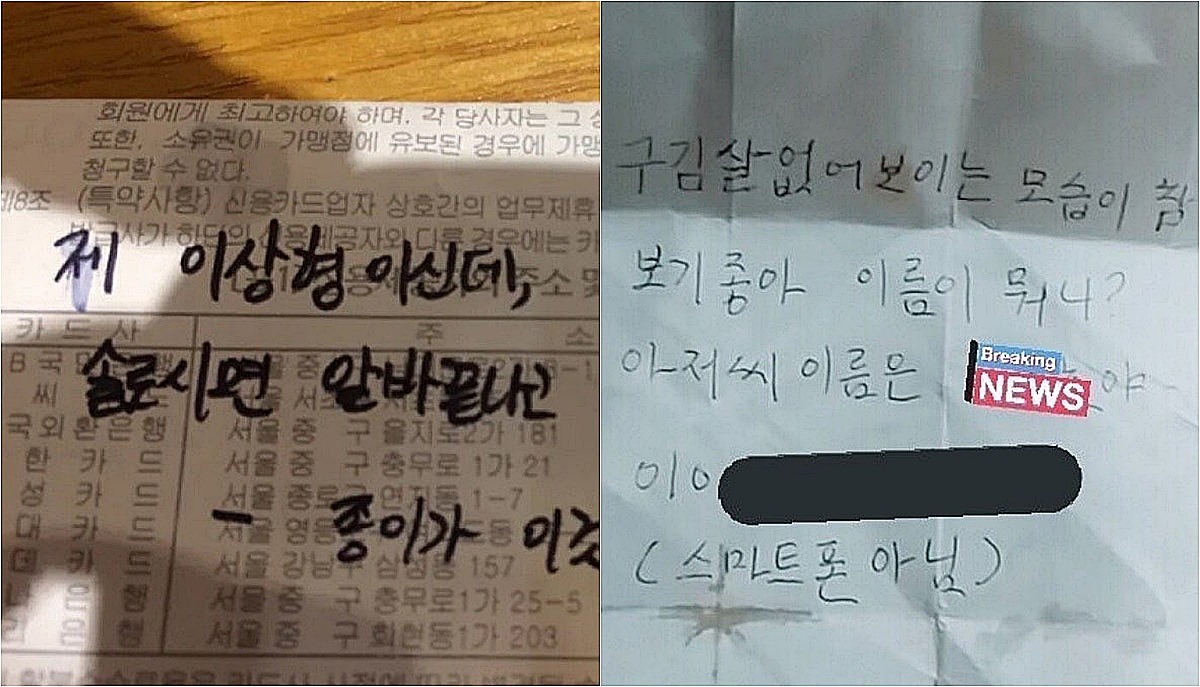 회원에게 최고하여야 하며. 각 당사자는 그
또한. 소유권이 가맹점에 유보된 경우에 가맹
청구할 수 없다.
제8조 (특약사항) 신용카드업자 상호간의 업무제휴
다른 경우에는 카
제 이상형이신데,
카 드 사 주 소
솔로시면 알바끝나고
국 외 환 은 행 서울 중 구 을지로2가 181
한 카 드 서울 중 구 충무로 1가 21
성 카 드 서울 종로구 연지동 1-7
- 종이가 이것
대 카 드 서울 영등
카 드 서울 강남구 삼성동 157
서울 중 구 충무로1가 25-5
행 서울 중 구 회현동1가 203
구김살 없어 보이는 모습이 참
보기 좋아 이름이 뭐니?
아저씨 이름은 야
Breaking
NEWS
010
(스마트폰 아님)